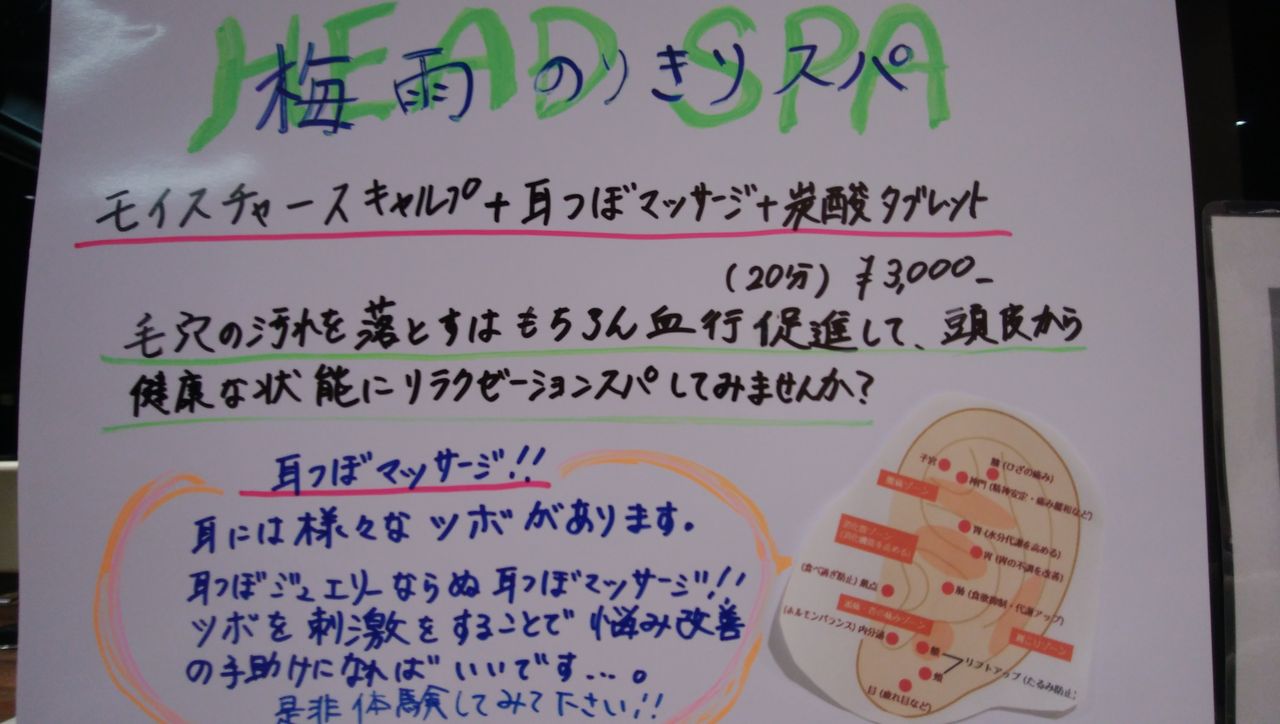 HEAD SPA
梅雨のりきりスパ
モイスチャースキャルプ+耳つぼマッサージ+炭酸タブレット
(20分) ¥3,000-
毛穴の汚れを落とすはもちろん血行促進して、頭皮から
健康な状態にリラクゼーションスパしてみませんか?
耳つぼマッサージ!!
耳には様々なツボがあります。
耳つぼジュエリーならぬ耳つぼマッサージ!!
ツボを刺激をすることで悩み改善
の手助けになればいいです...。
是非体験してみて下さい!!
子宮
膝 (ひざの痛み)
神門 (精神安定・痛み緩和など)
腰痛ゾーン
消化器ゾーン
(消化機能を高める)
(水分代謝を高める)
胃 (胃の不調を改善)
(食べ過ぎ防止) 飢点
肺 (食欲抑制・代謝アップ)
肩こりゾーン
(ホルモンバランス) 内分泌
額
頬
リフトアップ (たるみ防止)
目 (疲れ目など)